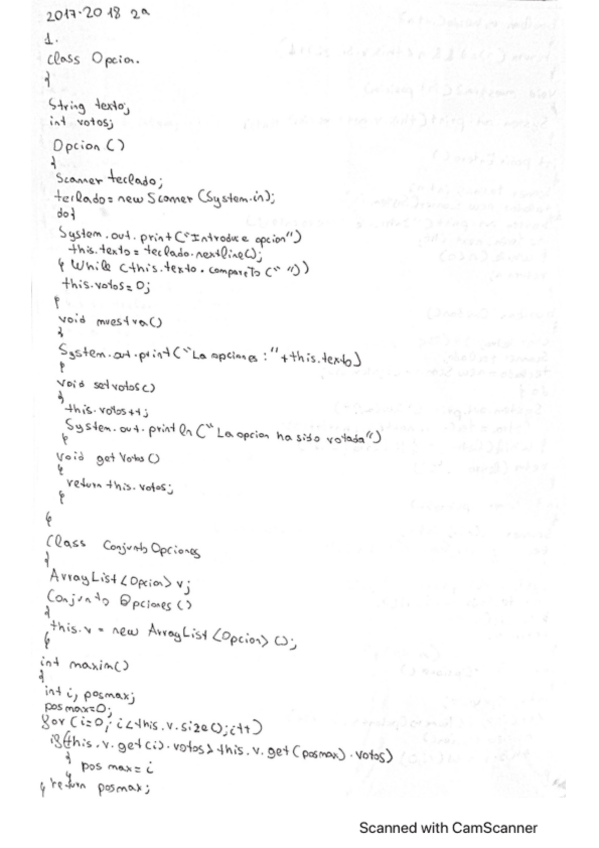 2017-2018 2ª
1.
class Opcion.
{
String texto;
int votos;
Opcion ()
{
Scanner teclado;
teclado = new Scanner (System.in);
do{
System.out.print ("Introduce opcion")
this.texto = teclado.nextline();
} While (this.texto.compareTo (" "))
this.votos = 0;
}
void muestra()
{
System.out.print ("La opcion es : "+this.texto)
}
void setvotos()
{
this.votos++;
System.out.println ("La opcion ha sido votada")
}
Void getVotos ()
{
return this.votos;
}
}
Class ConjuntoOpciones
{
ArrayList <Opcion> v;
Conjunto Opciones ()
{
this.v = new ArrayList <Opcion> ();
}
int maxim()
{
int i, posmax;
posmax=0;
for (i=0; i<this.v.size(); i++)
if(this.v.get(i).votos > this.v.get(posmax).votos)
{ posmax = i
}
} return posmax;
Scanned with CamScanner